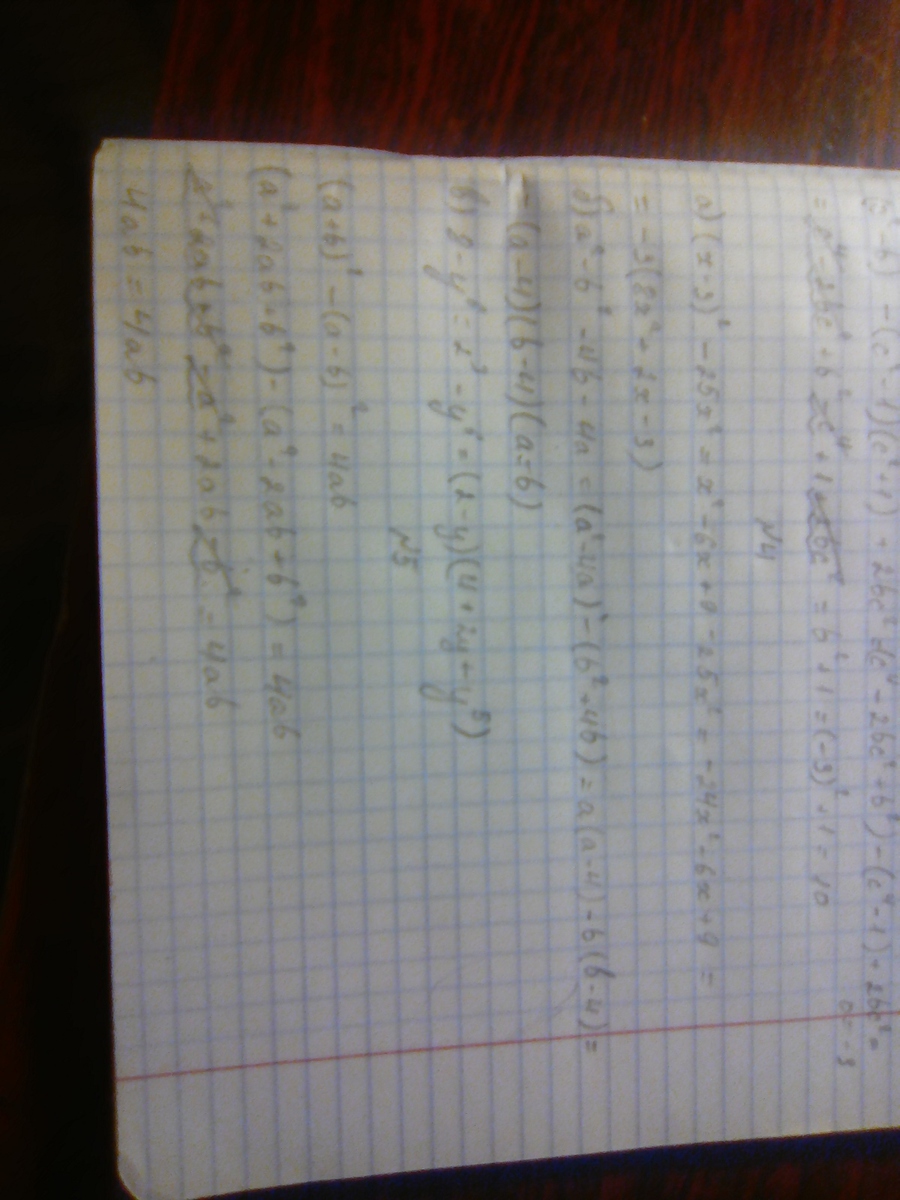 (c² - b) - (c² - 1)(c² + 1) + 2bc² = (c⁴ - 2bc² + b²) - (c⁴ - 1) + 2bc² =
b = -3
= c⁴ - 2bc² + b² - c⁴ + 1 + 2bc² = b² + 1 = (-3)² + 1 = 10
№4
а) (x - 3)² - 25x² = x² - 6x + 9 - 25x² = -24x² - 6x + 9 =
= -3(8x² + 2x - 3)
б) a² - b² - 4b - 4a = (a² - 4a) - (b² + 4b) = a(a - 4) - b(b - 4) =
= (a - 4)(b - 4)(a - b)
в) 8 - y⁶ = 2³ - y⁶ = (2 - y)(4 + 2y + y³)
№5
(a + b)² - (a - b)² = 4ab
(a² + 2ab + b²) - (a² - 2ab + b²) = 4ab
a² + 2ab + b² - a² + 2ab - b² = 4ab
4ab = 4ab